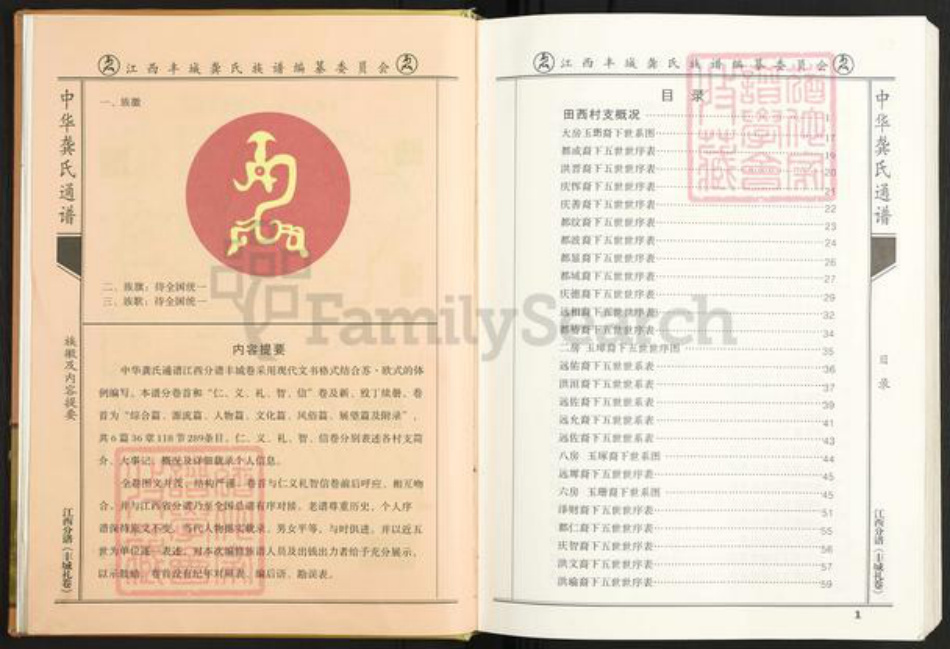 江西丰城龚氏族谱编纂委员会
中华龚氏通谱
族徽及内容提要
江西分谱(丰城礼卷)
一、族徽
二、族旗：待全国统一
三、族歌：待全国统一
内容提要
中华龚氏通谱江西分谱丰城卷采用现代文书格式结合苏·欧式的体
例编写。本谱分卷首和“仁、义、礼、智、信”卷及新、殁丁续册。卷
首为“综合篇、源流篇、人物篇、文化篇、风俗篇、展望篇及附录”，
共6篇36章118节289条目。仁、义、礼、智、信卷分别表述各村支简
介、大事记、概况及详细载录个人信息。
全卷图文并茂，结构严谨，卷首与仁义礼智信卷前后呼应，相互吻
合，并与江西省分谱乃至全国总谱有序对接。老谱尊重历史，个人序
谱保持原文不变。当代人物据实载录，男女平等，与时俱进。并以近五
世为单位逐一表述。对本次编修族谱人员及出钱出力者给予充分展示，
以示鼓励。卷首设有纪年对照表、编后语、勘误表。
江西丰城龚氏族谱编纂委员会
目 录
田西村支概况 1
大房玉 裔下世系图 17
都成裔下五世世序表 19
洪晋裔下五世世序表 20
庆恽裔下五世世序表 21
庆善裔下五世世序表 22
都纹裔下五世世序表 23
都波裔下五世世序表 24
都显裔下五世世序表 26
都城裔下五世世序表 27
庆德裔下五世世序表 29
远相裔下五世世序表 32
都椿裔下五世世序表 34
二房 玉璋裔下五世世序图 35
远佑裔下五世世系表 36
洪沮裔下五世世系表 37
远佐裔下五世世系表 39
远允裔下五世世系表 41
远佐裔下五世世系表 43
八房 玉琢裔下世系图 44
远辉裔下五世世序表 45
六房 玉珊裔下世系图 45
泽则裔下五世世序表 51
都仁裔下五世世序表 55
庆智裔下五世世序表 56
洪文裔下五世世序表 57
洪榆裔下五世世序表 59
中华龚氏通谱
目录
江西分谱(丰城礼卷)
1
FamilySearch